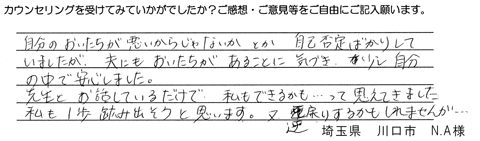 カウンセリングを受けてみていかがでしたか？ご感想・ご意見等をご自由にご記入願います。
自分のおいたちが悪いからじゃないか とか 自己否定ばかりして
いましたが、夫にもおいたちが あることに 気づき 少し 自分
の中で安心しました。
先生と お話しているだけで 私もできるかも…って 思えてきました
私も 1歩 踏み出そうと思います。又 逆戻りするかもしれませんが…
埼玉県 川口市 N.A様